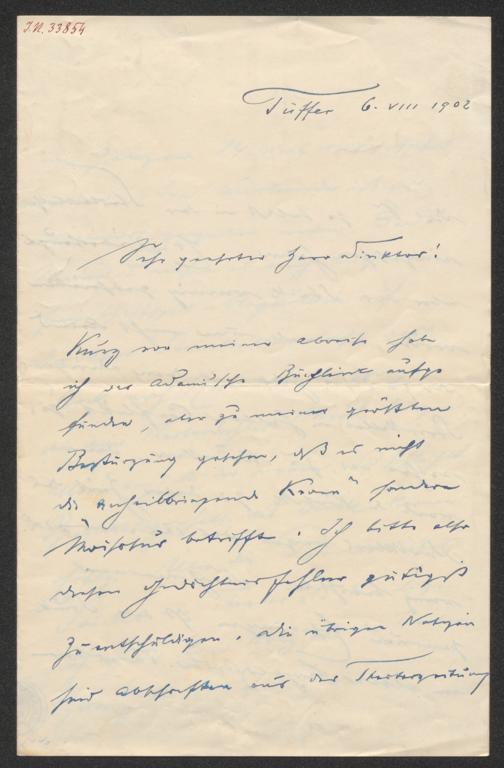 I.N. 33854
Tüffer 6. VIII 1902
Sehr geehrter Herr Direktor!
Kurz vor meiner Abreise habe
ich das Adami'sche Büchlein aufge
funden, aber zu meiner größten
Bestürzung gesehen, daß es nicht
die unheilbringende Krone" sondern
Moisasur betrifft. Ich bitte also
diesen Gedächtnisfehler gütigst
zu entschuldigen. Die übrigen Notizen
sind Abschriften aus der Theaterzeitung